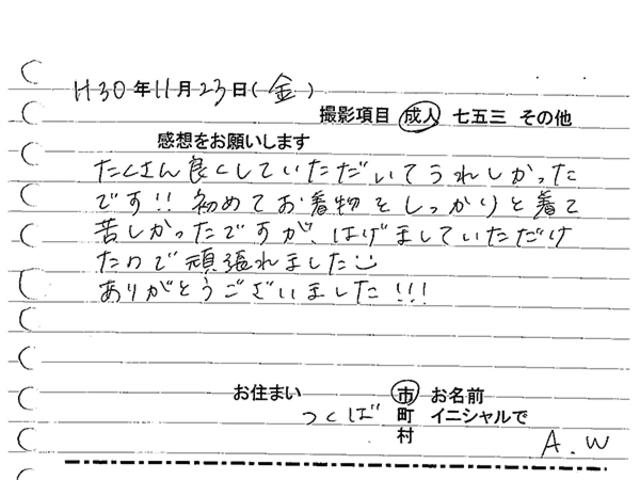 H30年11月23日(金)
撮影項目 成人 七五三 その他
感想をお願いします
たくさん良くしていただいてうれしかった
です!! 初めてお着物をしっかりと着て
苦しかったですが、はげましていただけ
たので頑張れました
ありがとうございました!!!
お住まい つくば 市 町 村 お名前 イニシャルで
A.W